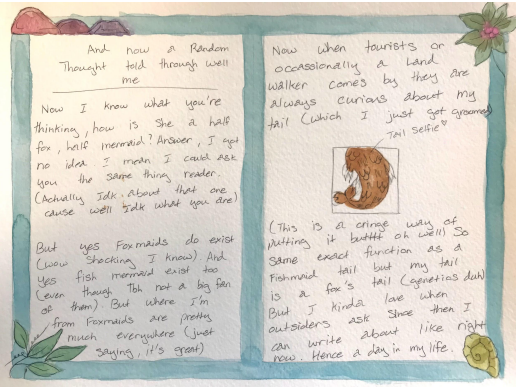 And now a Random
Thought told through well
me
Now I know what you're
thinking, how is she a half
fox, half mermaid? Answer, I got
no idea. I mean I could ask
you the same thing reader.
(Actually Idk about that one
cause we'll Idk what you are)
But yes Foxmaids do exist
(wow shocking I know). And
yes fish mermaid exist too
(even though Tbh not a big fan
of them). But where I'm
from Foxmaids are pretty
much everywhere (just
saying, it's great)
Now when tourists or
occassionally a Land
walker comes by they are
always curious about my
tail (which I just got groomed)
Tail selfie
(This is a cringe way of
putting it but oh well) So
same exact function as a
Fishmaid tail but my tail
is a fox's tail (genetics duh)
But I kinda love when
outsiders ask since then I
can write about like right
now. Hence a day in my life.